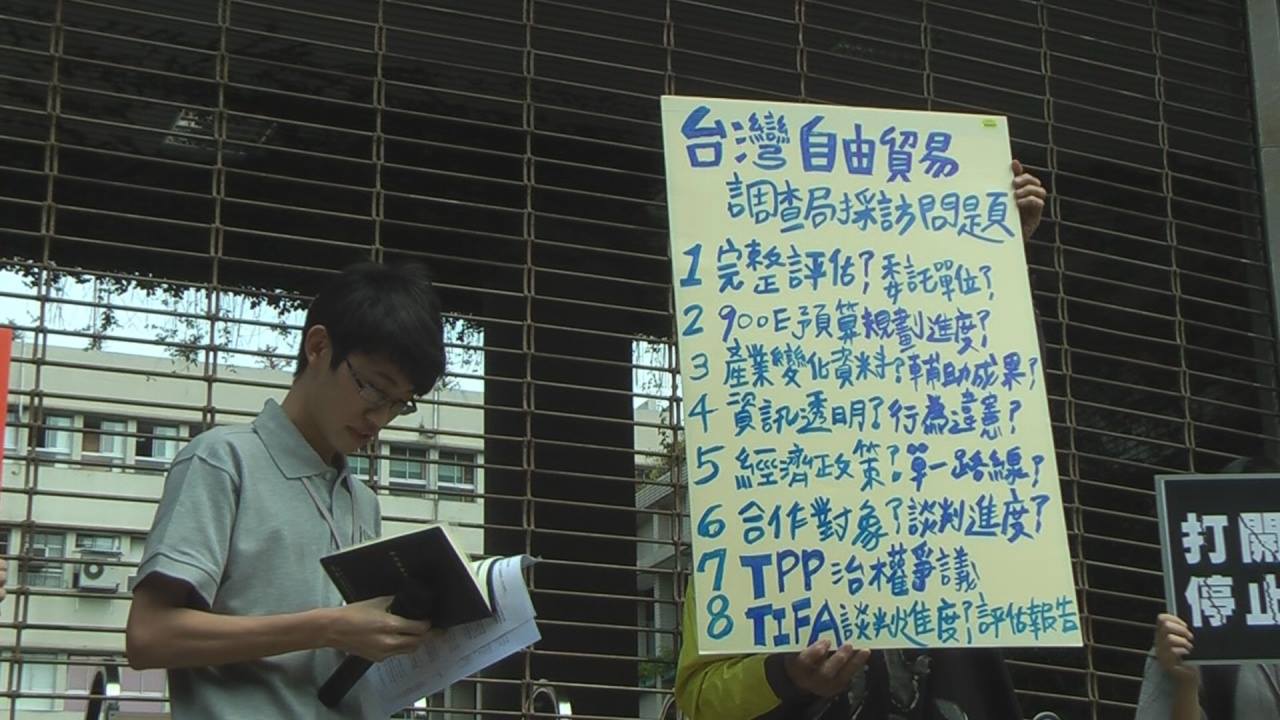 台灣自由貿易
調查局採訪問題
1 完整評估? 委託單位?
2 900E預算規劃進度?
3 產業變化資料?輔助成果?
4 資訊透明?行為違憲?
5 經濟政策?單一路線?
6 合作對象?談判進度?
7 TPP治權爭議
8 TIFA談判進度?評估報告
打開
停止